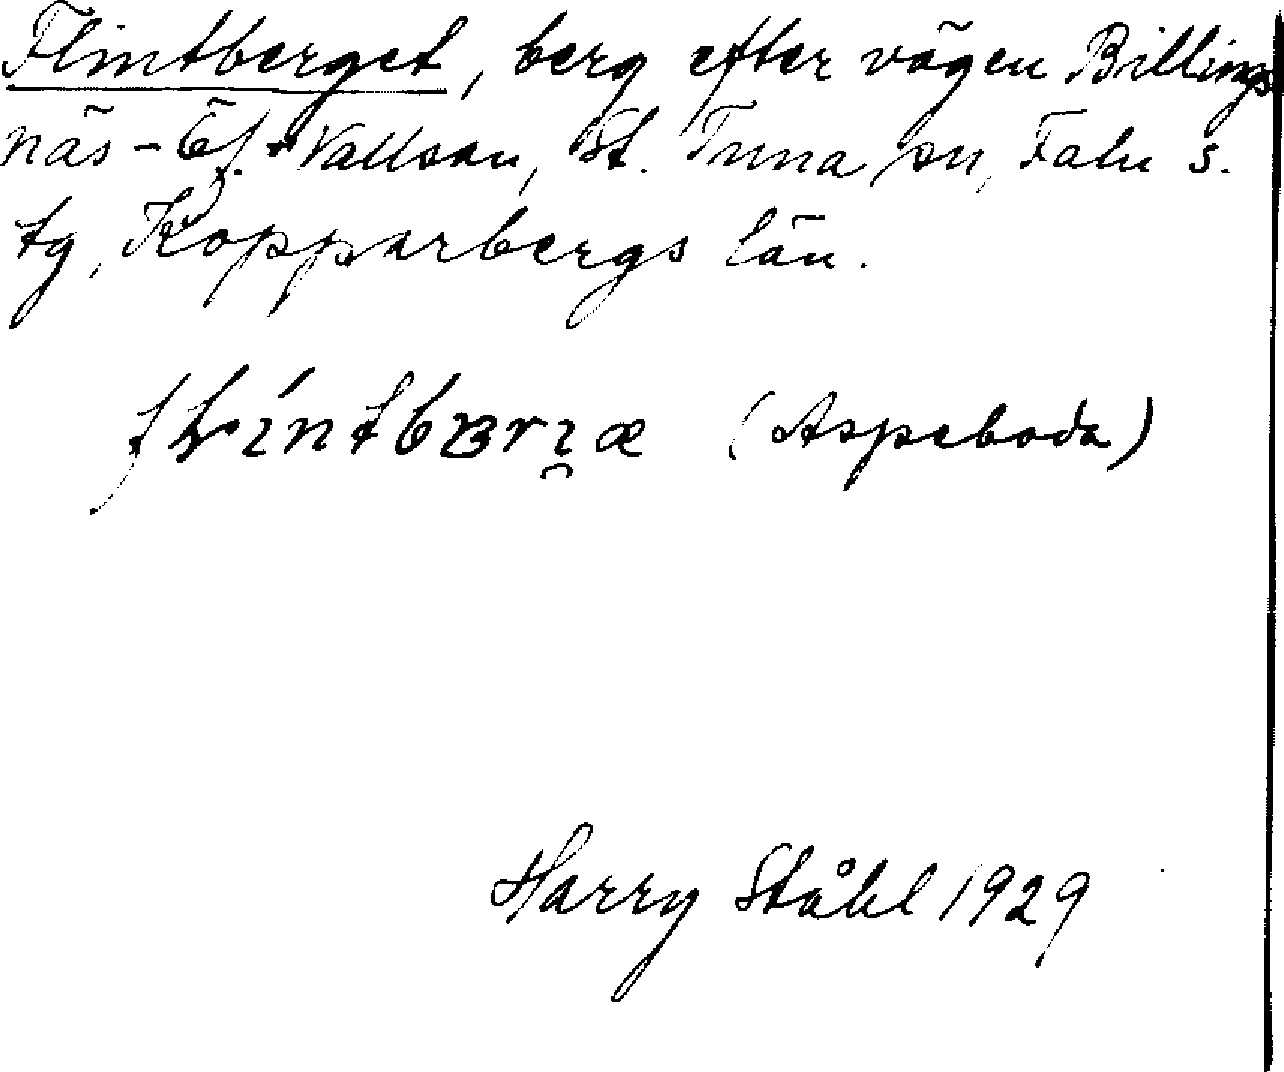 Flintberget, berg efter vägen Billings
näs - Öf. Vallsån, St. Tuna sn, Falu s.
tg, Kopparbergs län.
(Aspeboda)
Harry Ståhl 1929